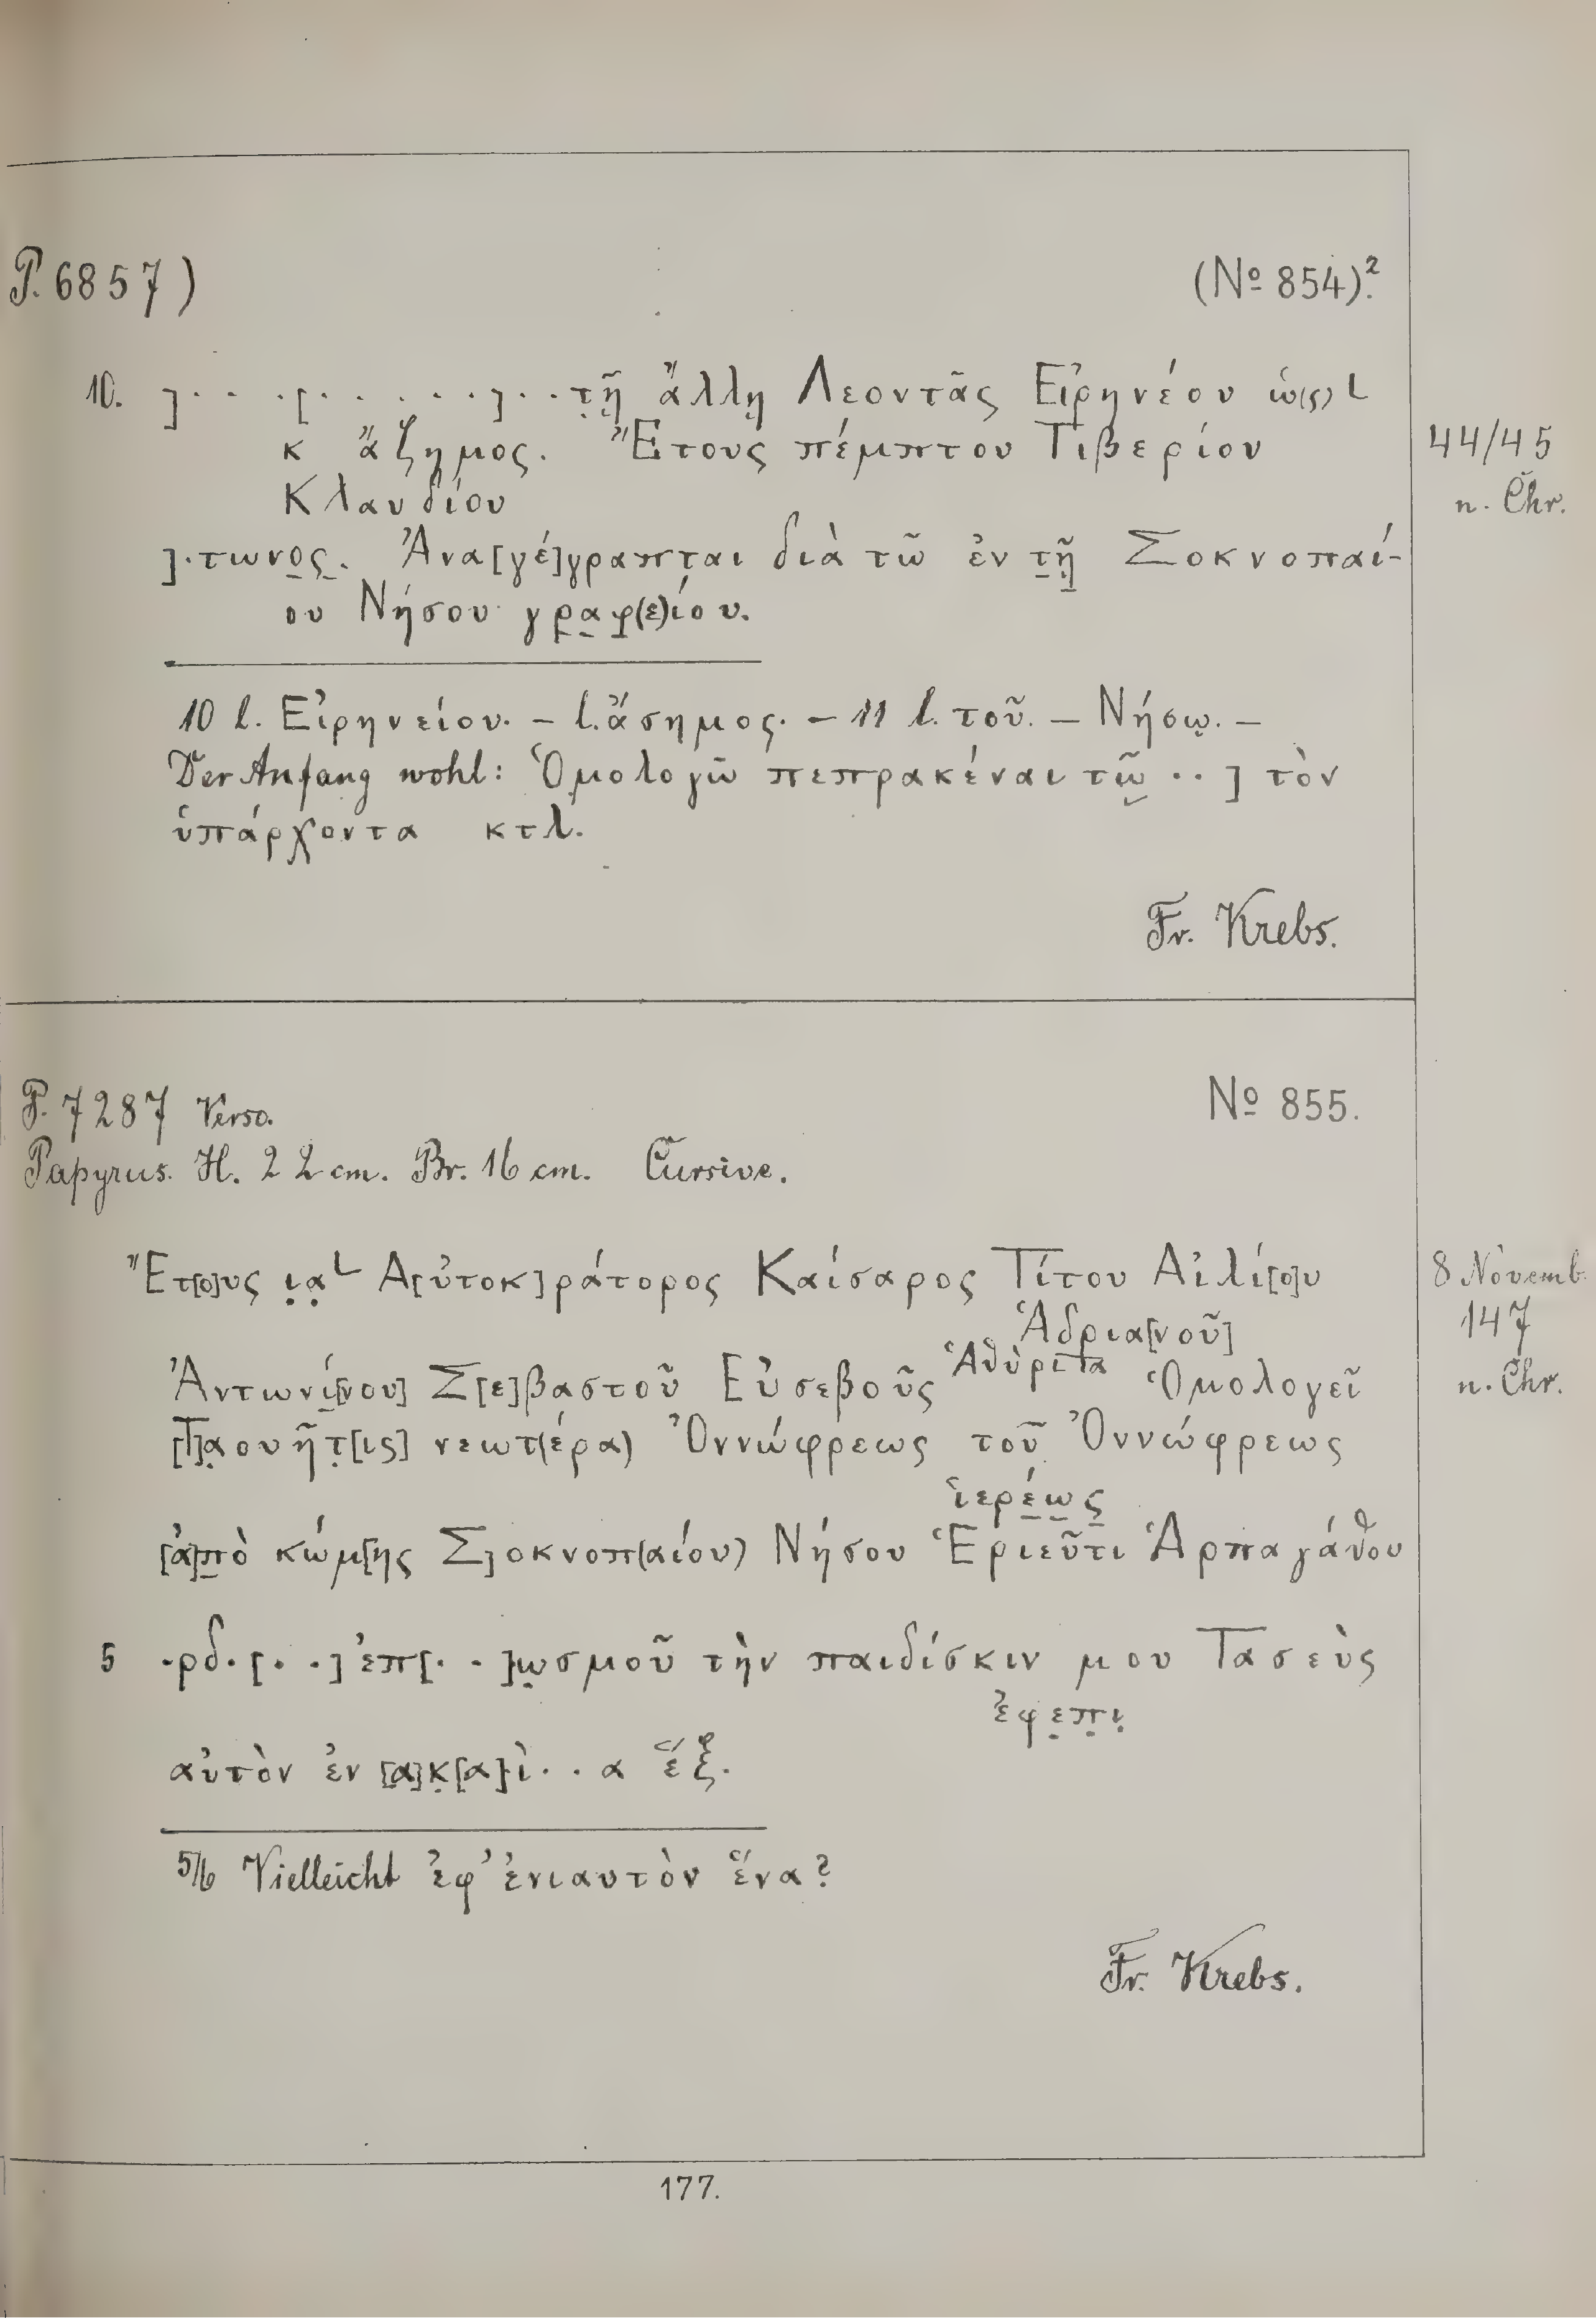 P. 6857)
(No 854).²
10. ]. . . .[. . . . . .]. . τῇ ἄλλῃ Λεοντᾶς Εἰρηνέου ὡ(ς) L
κ ἄζημος. Ἔτους πέμπτου Τιβερίου
Κλαυδίου
44/45
n. Chr.
].τωνο̣ς̣. Ἀνα[γέ]γραπται διὰ τῶ ἐν τ̣ῇ̣ Σοκνοπαί-
ου Νήσου γρ̣α̣φ̣(ε)ίου.
10 l. Εἰρηνείου. – l. ἄσημος. – 11 l. τοῦ. – Νήσῳ. –
Der Anfang wohl: Ὁμολογῶ πεπρακέναι τῷ . . ] τὸν
ὑπάρχοντα κτλ.
Fr. Krebs.
P. 7287 Verso.
No 855.
Papyrus. H. 22 cm. Br. 16 cm. Cursive.
Ἔτ[ο]υς ι̣α̣ L Α[ὐτοκ]ράτορος Καίσαρος Τίτου Αἰλί[ο]υ
Ἁδρια[νοῦ]
8 Novemb.
147
n. Chr.
Ἀντωνί̣[νου] Σ[ε]βαστοῦ Εὐσεβοῦς Ἁθὺρ ιτα Ὁμολογεῖ
[Τ]α̣ουῆτ̣[ις] νεωτ(έρα) Ὀννώφρεως τοῦ Ὀννώφρεως
ἱερέ̣ω̣ς̣
[ἀ]π̣ὸ κώμ[ης Σ]οκνοπ(αίου) Νήσου Ἑριεῦτι Ἁρπαγάθου
5 .ρδ.[. .] ἐπ[. .]ω̣σμοῦ τὴν παιδίσκιν μου Τασεὺς
ἐφε̣π̣ι̣
αὐτὸν ἐν [α]κ̣[α]ὶ . . α ἕξ.
5/6 Vielleicht ἐφ’ ἐνιαυτὸν ἕνα?
Fr. Krebs.
177.